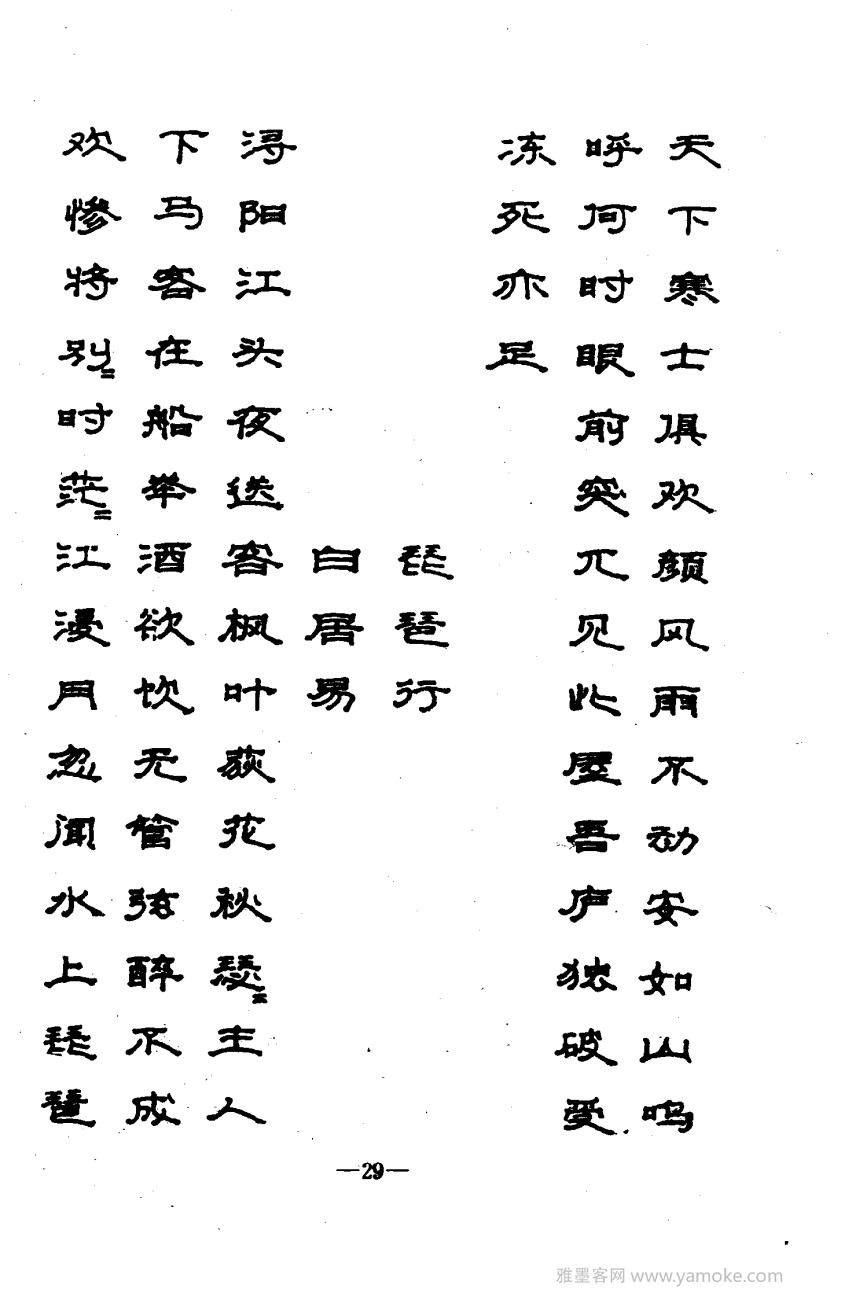 天下寒士俱欢颜风雨不动安如山鸣
呼何时眼前突兀见此屋吾庐独破受
冻死亦足
琵琶行
白居易
浔阳江头夜送客枫叶荻花秋瑟=主人
下马客在船举酒欲饮无管弦醉不成
欢惨将别=时茫=江浸月忽闻水上琵琶
—29—
雅墨客网 www.yamoke.com